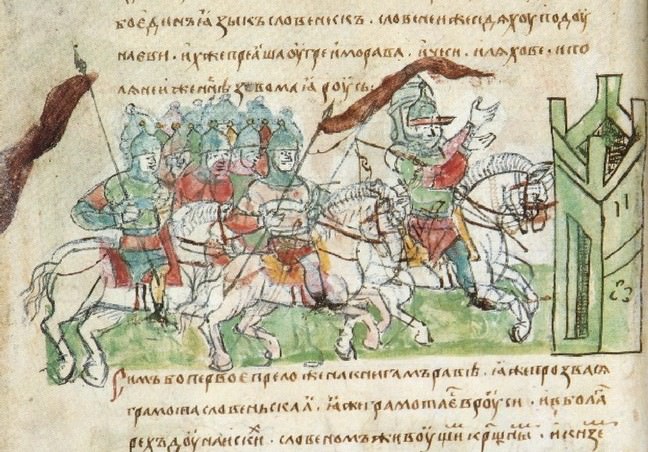 бо единъ ꙗзыкъ словенескъ · словене же седѧхоу по доу
наеви · ихже преꙗша оугре и морава · и чеси · и лѧхове · и по
лѧне иже нн҃ѣ зовомаꙗ роусь ·
Симъ бо первое преложена книга мѡравѣ · ꙗже прозвасѧ
грамота словеньскаꙗ · ꙗже грамота е в роуси · и в болга
рехъ доунаискихъ · словеномъ живоущимъ крщнымъ · и кнзе